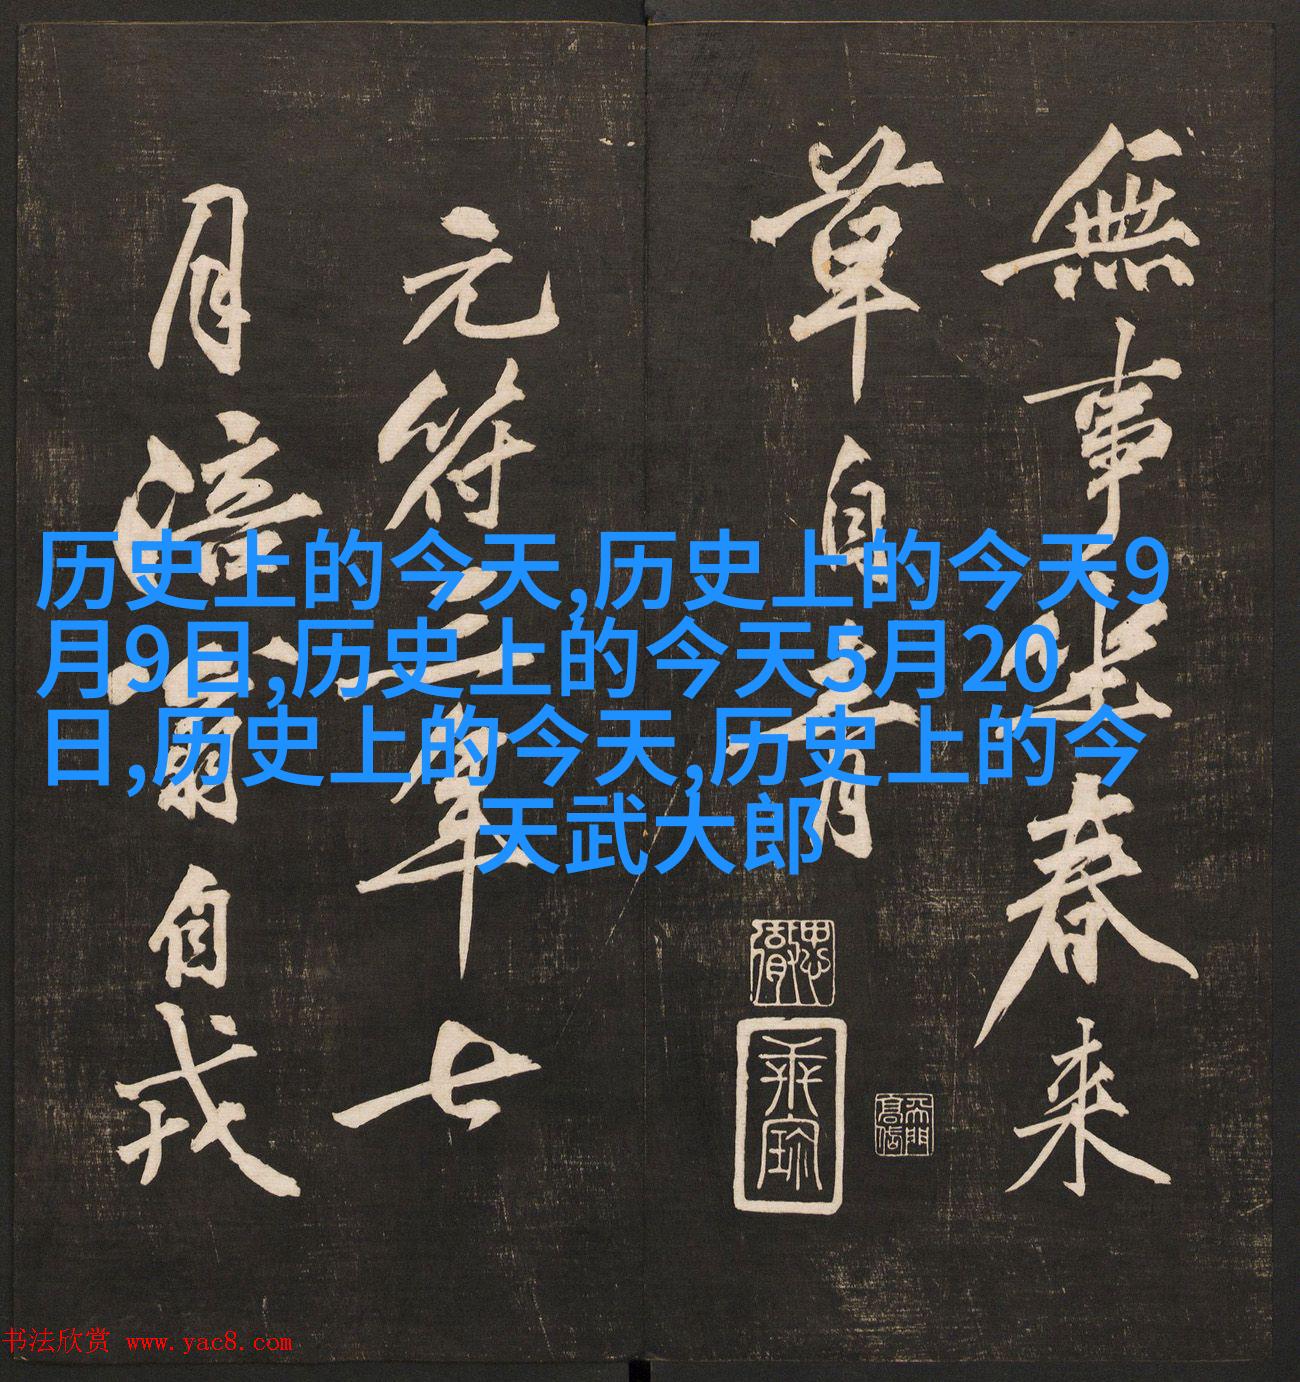 無事坐春来
草自青
元符三年七
月涪翁自戎
历史上的今天,历史上的今天9
月9日,历史上的今天5月20
日,历史上的今天,历史上的今
天武大郎
书法欣赏 www.yac8.com